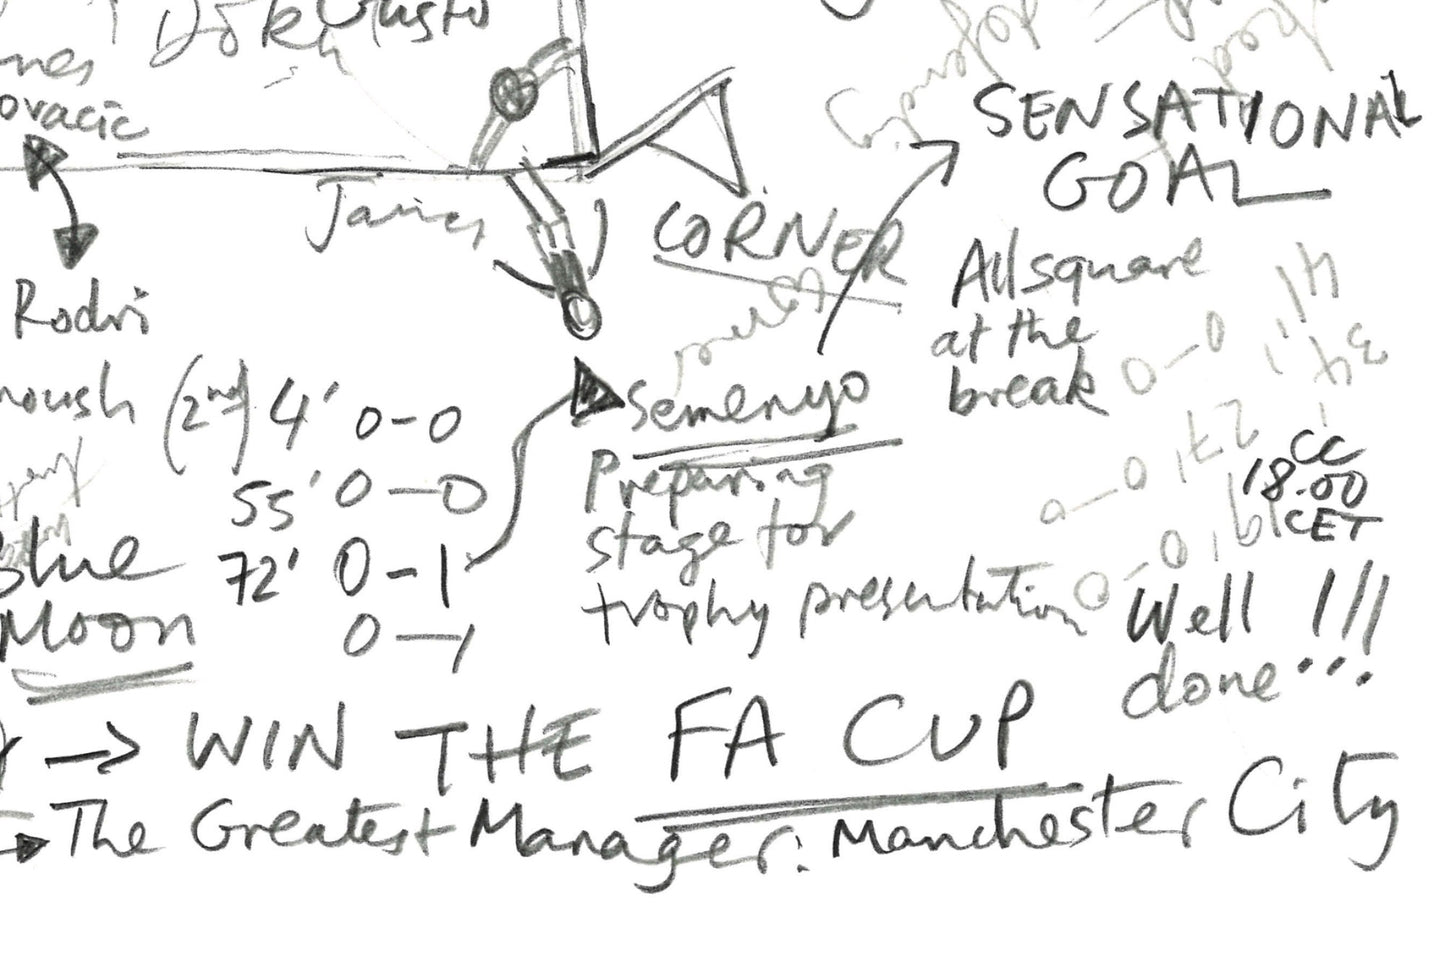 Gusto
ovacic
James
CORNER
SENSATIONAL
GOAL
All square
at the
break
0-0
Rodri
(2nd) 4' 0-0
55' 0-0
72' 0-1
0-1
Semenyo
Preparing
stage for
trophy presentation
27' 0-0
CC
18.00
CET
Blue
Moon
Well !!!
done...
→ WIN THE FA CUP
The Greatest Manager: Manchester City